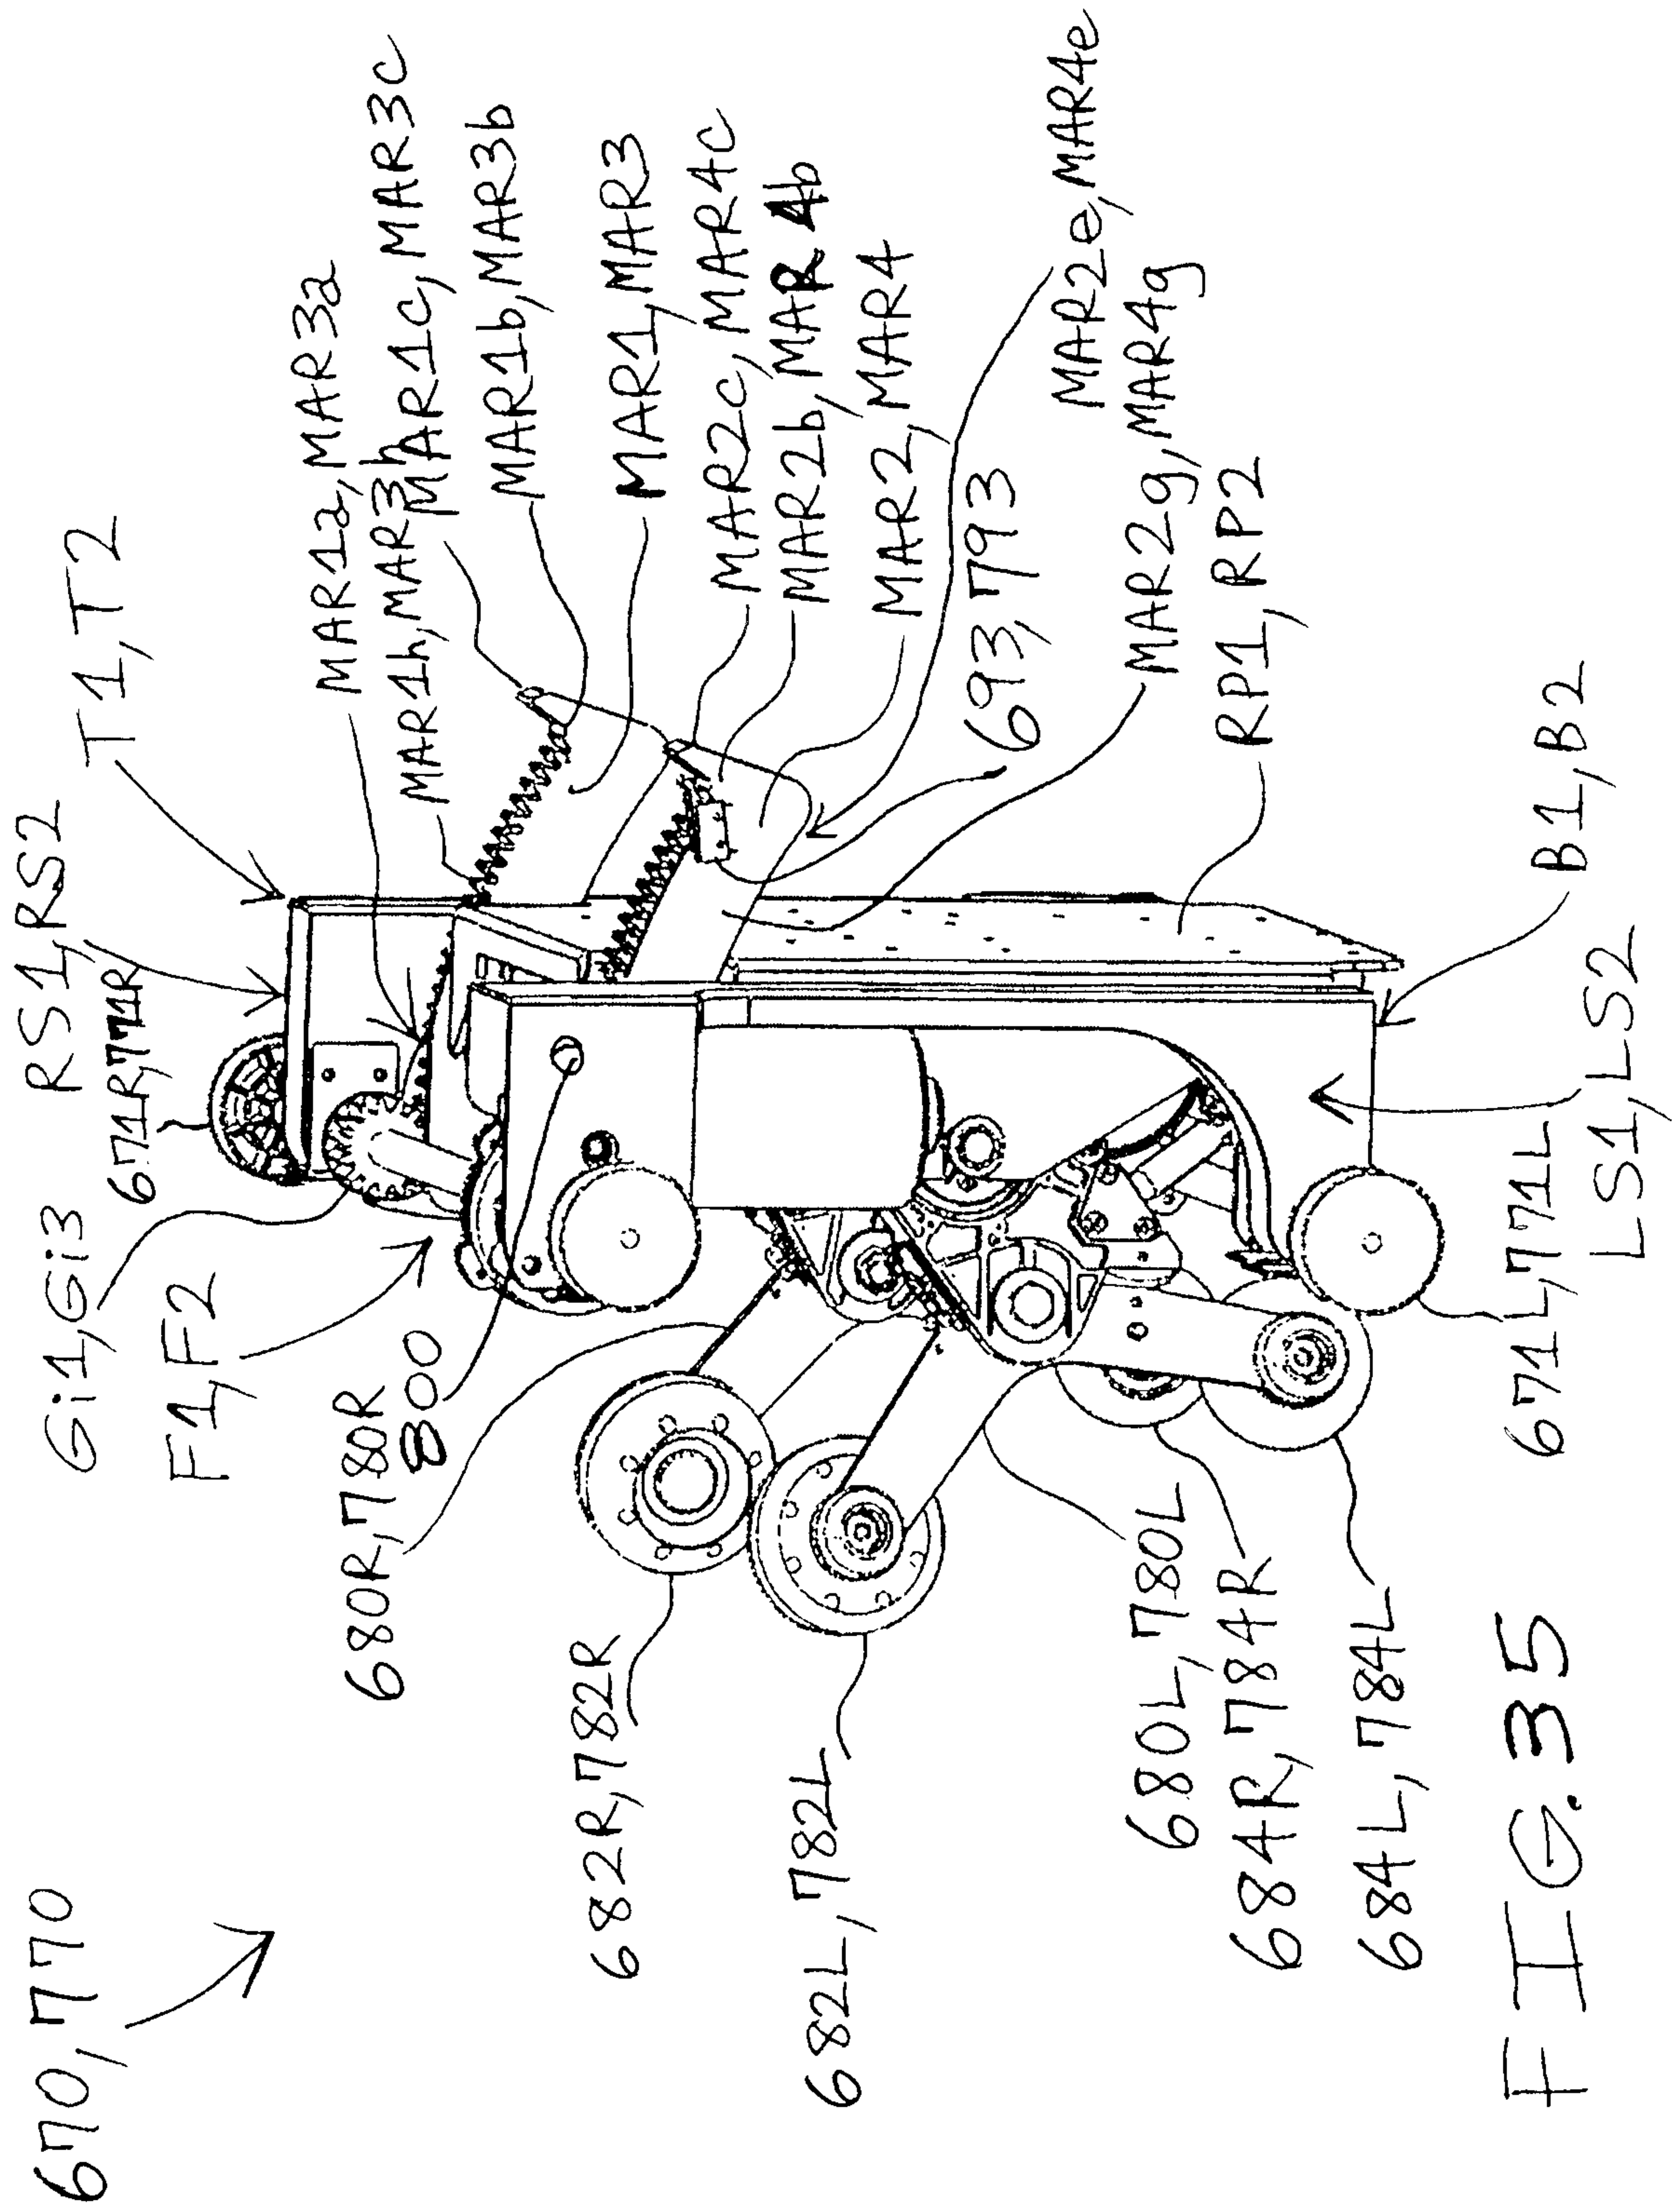 670,770
Gi1,Gi3
RS1,RS2
671R,771R
T1,T2
F1,F2
MAR1a,MAR3a
MAR1h,MAR3h
MAR1c,MAR3c
MAR1b,MAR3b
MAR1,MAR3
MAR2c,MAR4c
MAR2b,MAR4b
MAR2,MAR4
693,793
MAR2e,MAR4e
MAR2g,MAR4g
RP1,RP2
B1,B2
680R,780R
800
682R,782R
682L,782L
680L,780L
684R,784R
684L,784L
671L,771L
LS1,LS2
FIG.35